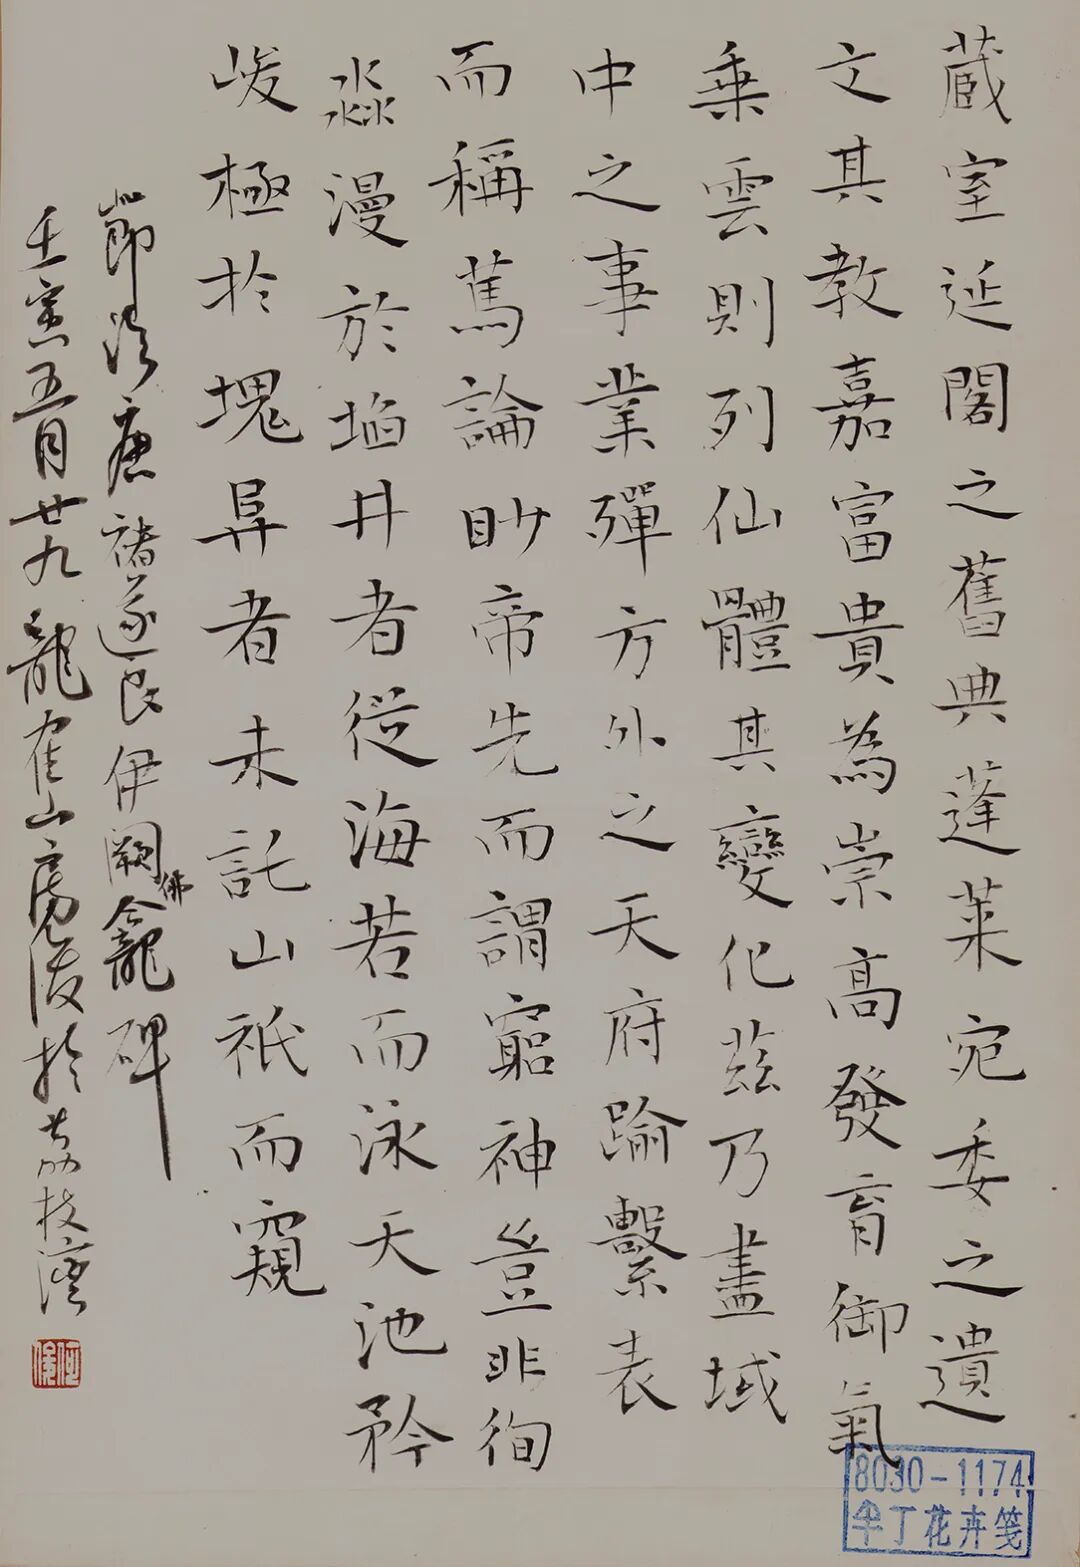 藏室延閣之舊典蓬萊宛委之遺
文其教嘉富貴為崇高發育御氣
乘雲則列仙體其變化茲乃盡域
中之事業殫方外之天府踰繫表
而稱篤論眇帝先而謂窮神豈非徇
淼漫於埳井者從海若而泳天池矜
峻極於塊阜者未託山祇而窺
節臨唐褚遂良伊闕佛龕碑
壬寅五月廿九龍隺山房陵於荔枝灣
8030-1174
丁花卉笺